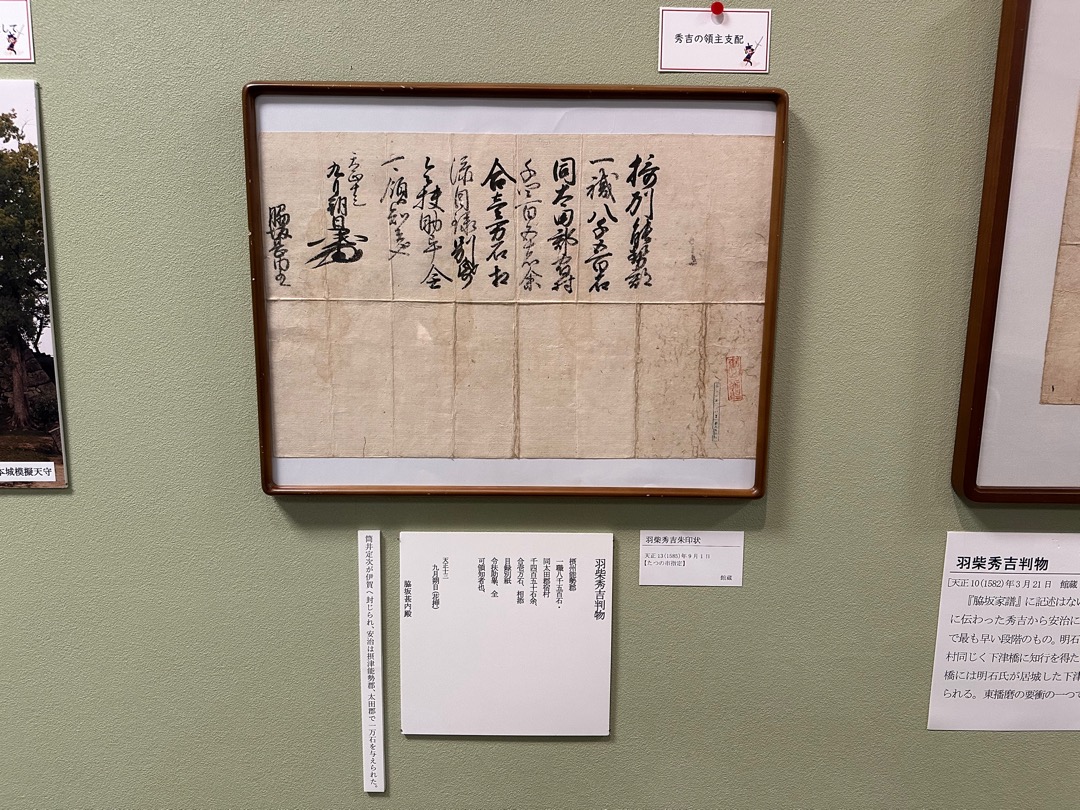 して
秀吉の領主支配
摂州能勢郡
一職八千五百石
同太田郡宿村
千四百五十石余
合壱万石相
添目録別紙
令扶助畢全
可領知者也
天正十三
九月朔日
脇坂甚内殿
本城模擬天守
筒井定次が伊賀へ封じられ、安治は摂津能勢郡、太田郡で一万石を与えられた。
羽柴秀吉判物
摂州能勢郡
一職八千五百石・
同太田郡宿村
千四百五十石余、
合壱万石、相添
目録別紙
令扶助畢、全
可領知者也、
天正十三
九月朔日(花押)
脇坂甚内殿
羽柴秀吉朱印状
天正13(1585)年9月1日
【たつの市指定】
館蔵
羽柴秀吉判物
[天正10(1582)年3月21日 館蔵
『脇坂家譜』に記述はない
に伝わった秀吉から安治に
で最も早い段階のもの。明石
村同じく下津橋に知行を得た
橋には明石氏が居城した下津
られる。東播磨の要衝の一つで